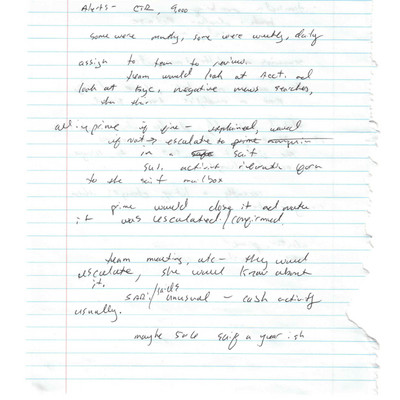 Alerts - CTR, 9,000
some were monthly, some were weekly, daily
assign to team to review.
team would look at Acct. and
look at KYC, negative news searches,
if fine - explained, waived
if not → escalate to prime
in a SCIF
activity referral form
to the scif mailbox
prime would close it and note
it was escalated/confirmed.
team meeting, etc - they would
escalate, she would know about
it.
unusual - cash activity
usually.
maybe scif a year ish